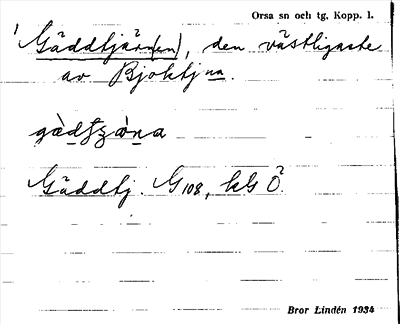 Orsa sn och tg. Kopp. l.
1 Gäddtjärn(en), den västligaste
av Bjoktjna.
Gäddtj. G108, kG Ö.
Bror Lindén 1934